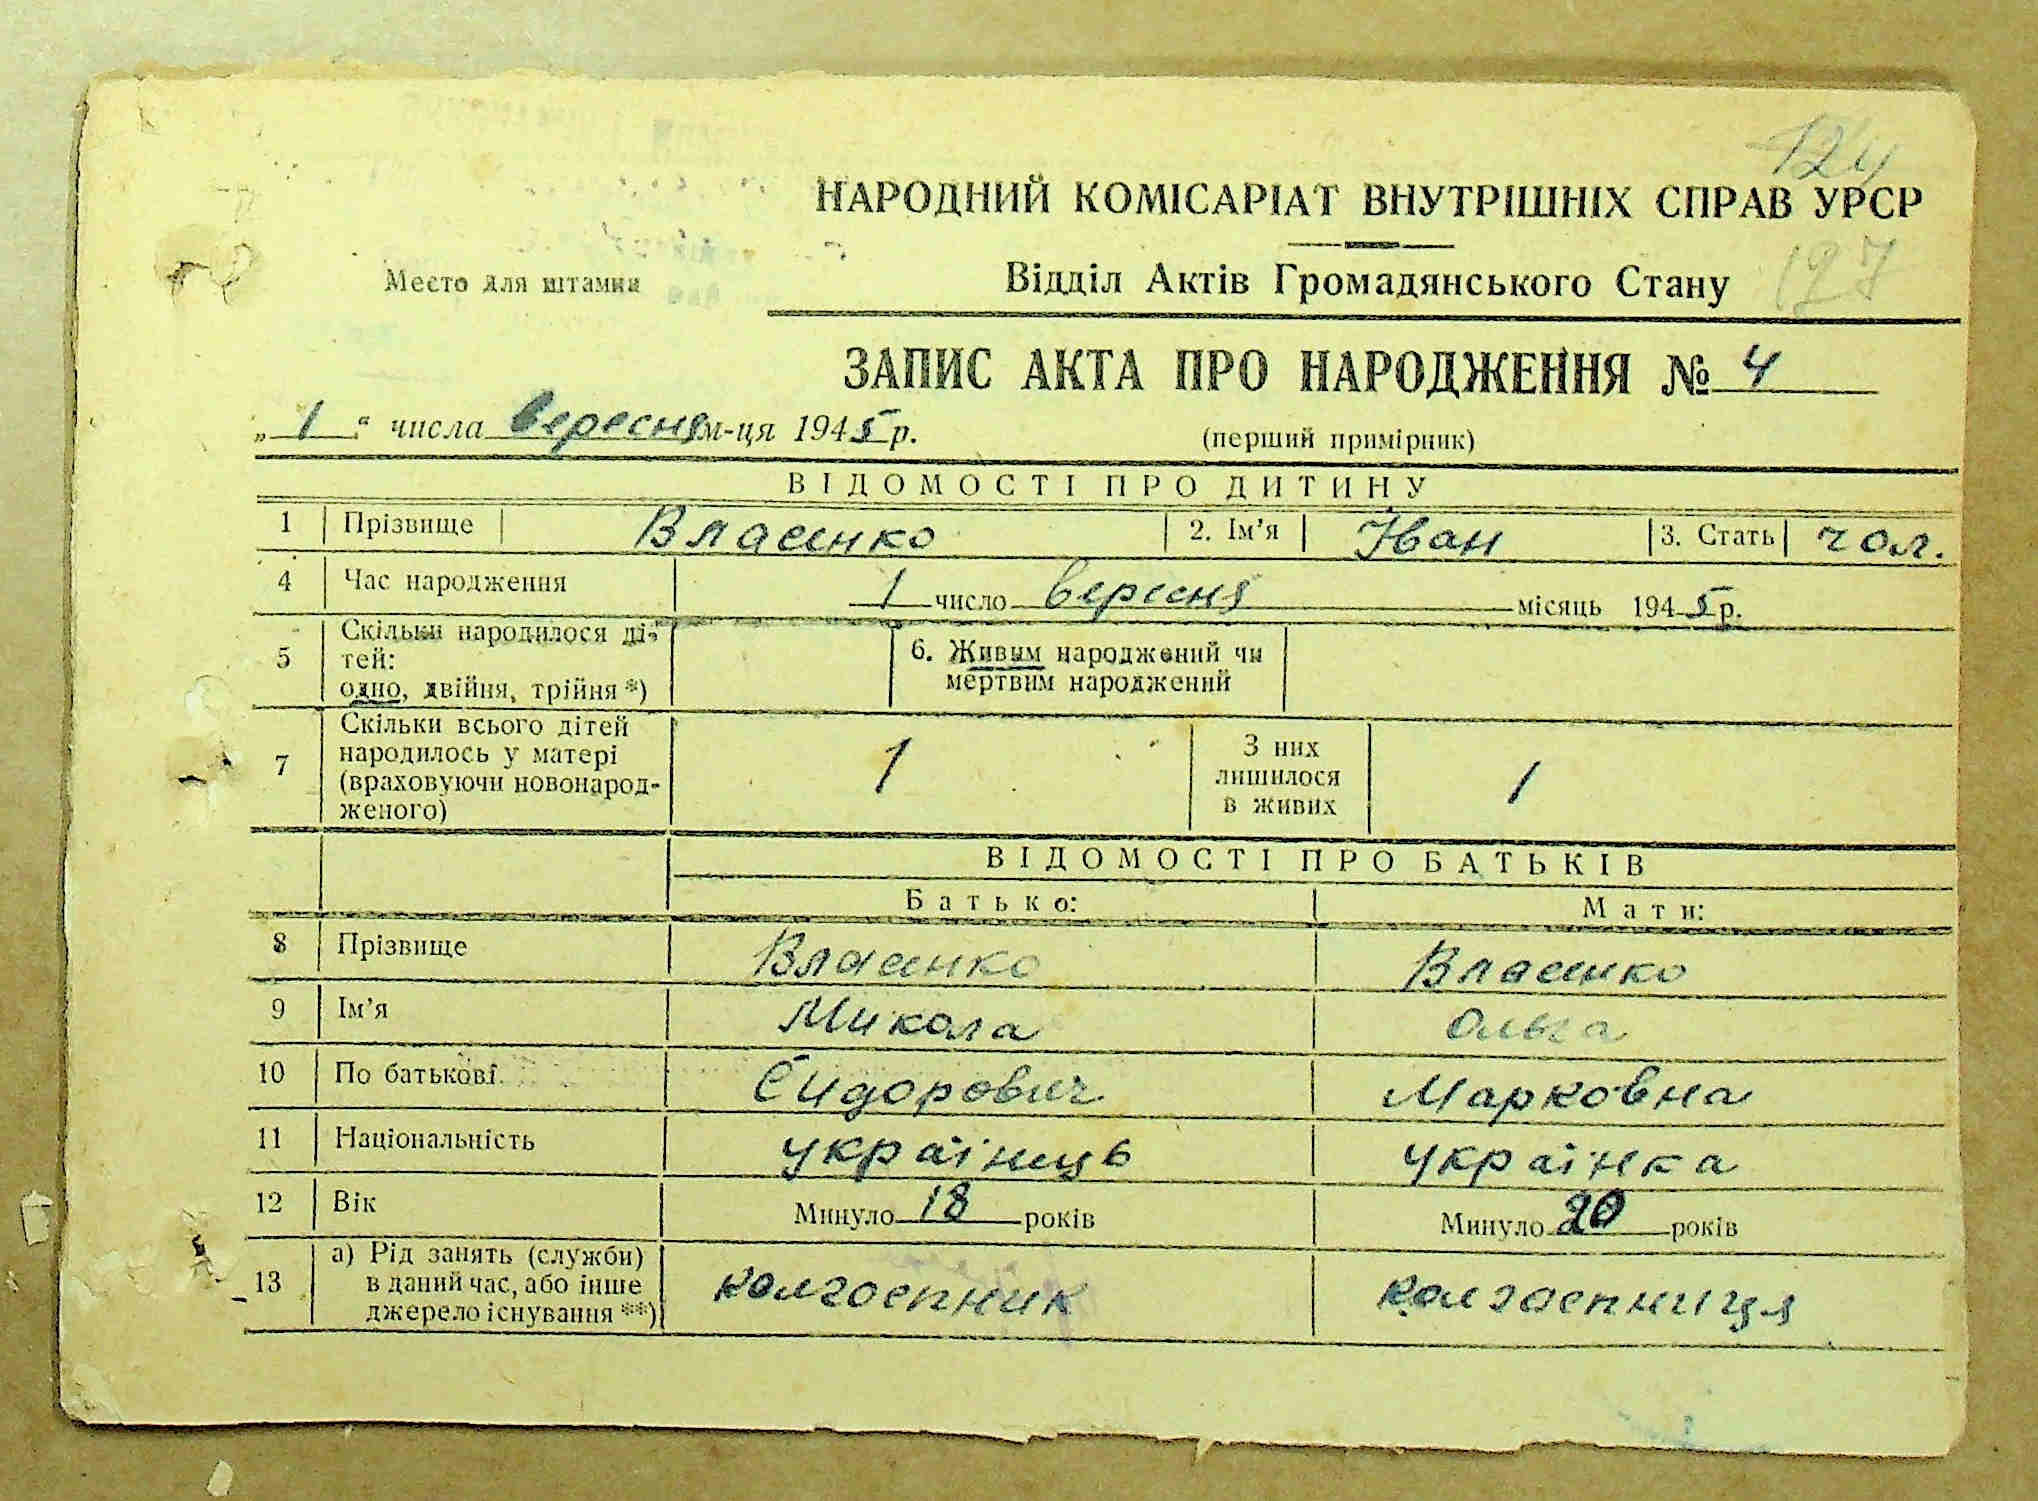 124
НАРОДНИЙ КОМІСАРІАТ ВНУТРІШНІХ СПРАВ УРСР
Место для штампа
Відділ Актів Громадянського Стану
127
ЗАПИС АКТА ПРО НАРОДЖЕННЯ № 4
„ 1 “ числа вересня м-ця 1945 р.
(перший примірник)
ВІДОМОСТІ ПРО ДИТИНУ
1 Прізвище Власенко 2. Ім'я Іван 3. Стать чол.
4 Час народження 1 число вересня місяць 1945 р.
5 Скільки народилося ді-
тей:
одно, двійня, трійня *)
6. Живим народжений чи
мертвим народжений
7 Скільки всього дітей
народилось у матері
(враховуючи новонарод-
женого)
1
З них
лишилося
в живих
1
ВІДОМОСТІ ПРО БАТЬКІВ
Батько: Мати:
8 Прізвище Власенко Власенко
9 Ім'я Микола Ольга
10 По батькові Сидорович Марковна
11 Національність українець українка
12 Вік Минуло 18 років Минуло 20 років
13 а) Рід занять (служби)
в даний час, або інше
джерело існування **)
колгоспник колгоспниця